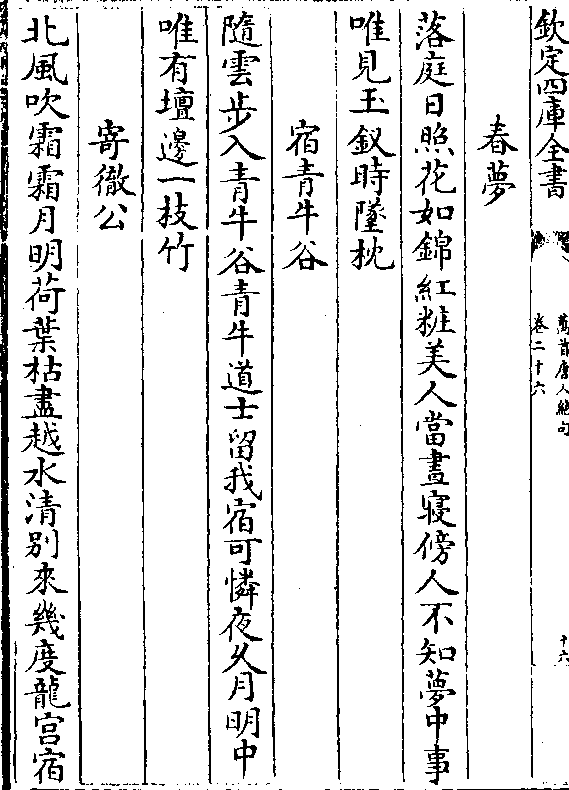 欽定四庫全書
萬首唐人絶句
卷二十六
十六
春夢
落庭日照花如錦紅粧美人當晝寢傍人不知夢中事
唯見玉釵時墜枕
宿青牛谷
隨雲步入青牛谷青牛道士留我宿可憐夜久月明中
唯有壇邊一枝竹
寄徹公
北風吹霜霜月明荷葉枯盡越水清别來幾度龍宫宿